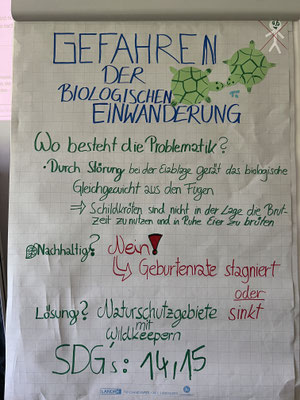 GEFAHREN
DER
BIOLOGISCHEN
EINWANDERUNG
Wo besteht die Problematik?
• Durch Störung bei der Eiablage gerät das biologische
Gleichgewicht aus den Fugen
⇒ Schildkröten sind nicht in der Lage die Brut-
zeit zu nutzen und in Ruhe Eier zu brüten
Nachhaltig? Nein!
↳ Geburtenrate stagniert
oder
sinkt
Lösung? Naturschutzgebiete
mit
Wildkeepern
SDG's: 14,15